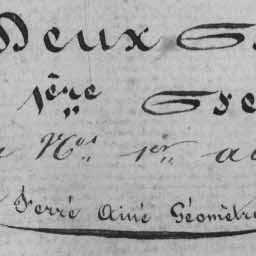 Deux Se
1ère Se
Nos 1er au
Ferré Ainé Géomètre